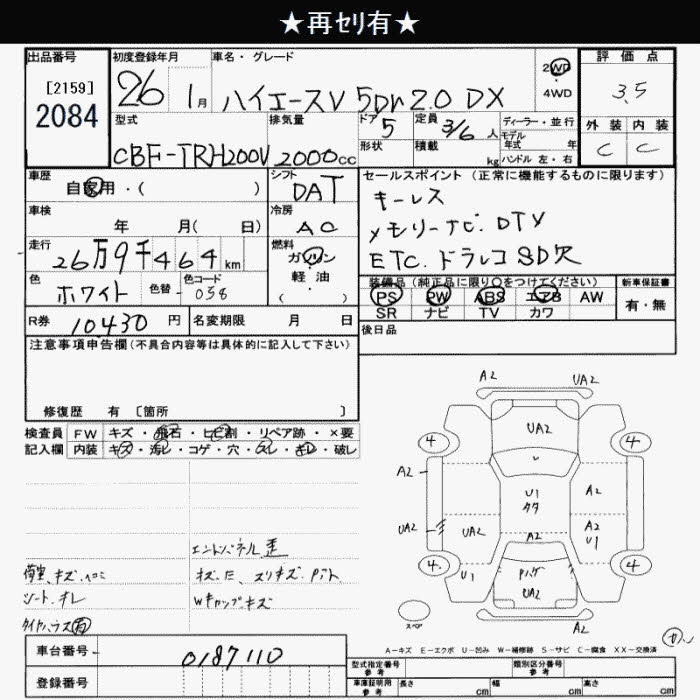 ★再ｾﾘ有★
出品番号
[2159]
2084
初度登録年月
26 1月
車名・グレード
ハイエースV 5Dr 2.0 DX
2WD
4WD
評価点
3.5
外装 内装
C C
型式
CBF-TRH200V
排気量
2000cc
ドア
5
形状
定員
3/6人
積載
kg
ディーラー・並行
モデル年式 年
ハンドル 左・右
車歴
自家用・( )
シフト
DAT
車検
年 月( 日)
冷房
AC
走行
26万9千464km
燃料
ガソリン
軽油
( )
色
ホワイト
色替
色コード
-058
R券
10430円
名変期限 月 日
セールスポイント (正常に機能するものに限ります)
キーレス
メモリーナビ.DTV
ETC.ドラレコSD欠
装備品 (純正品に限り○をつけてください)
PS PW ABS エアB AW
SR ナビ TV カワ
新車保証書
有・無
後日品
注意事項申告欄(不具合内容等は具体的に記入して下さい)
修復歴 有 [箇所 ]
検査員記入欄
FW キズ・飛石・ヒビ割・リペア跡・×要
内装 キズ・汚レ・コゲ・穴・スレ・キレ・破レ
エンドパネル歪
荷室.キズ.ヘコミ
シート.オレ
Wキャップキズ
タイヤハウス有
A2 UA2
UA2
4 4
A2
U1
タタ
A2
UA2
UA2
A2
A2
U1
4. 4
U1
UA2
A2
スペア
A－キズ E－エクボ U－凹み W－補修跡 S－サビ C－腐食 XX－交換済
車台番号
0187110
登録番号
型式指定番号
参考
類別区分番号
参考
車庫証明用
参考
長さ cm
幅 cm
高さ cm